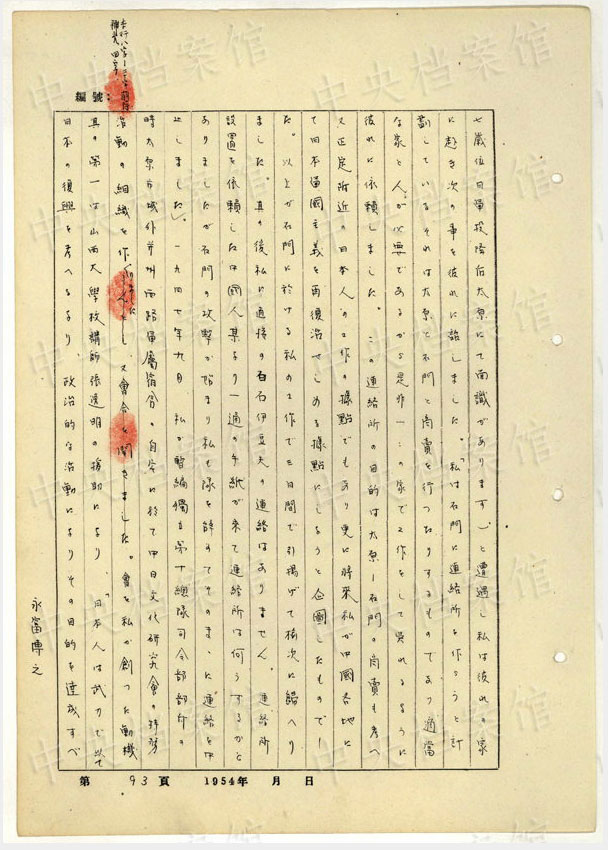 本行八字
編號：
七歳位日軍投降后太原にて面識があります）と遭遇し私は彼れの家
に赴き次の事を彼れに話しました。「私は石門に連絡所を作らうと計
劃しているそれは太原と石門と商賣を行つたりするものであり適當
な家と人が必要であるから是非一この家で工作をして呉れるように
彼れに依頼しました。この連絡所の目的は太原－石門の商賣も考へ
又正定附近の日本人の工作の據點でもあり更に將來私が中國各地に
て日本軍國主義を再復活せしめる據點にしようと企圖したものでし
た。以上が石門に於ける私の工作で三日間で引揚げて楡次に歸へり
ました。其の後私に直接の白石伊豆夫の連絡はありません。連絡所
設置を依頼した中國人某より一通の手紙が来て連絡所は何うするかと
ありましたが石門の攻撃が始まり私も隊を辭すてそのまゝに連絡を中
止しました」。一九四七年九月 私が暫編獨立第十總隊司令部部附の
時太原市城外并州西路軍屬宿舎の自分に於て中日文化研究會の特務
活動の組織を作りました 又會合を開きました。會を私が創つた動機
其の第一は山西大學校講師張逢明の援助により、"日本人は武力で以て
日本の復興を考へるより、政治的な活動によりその目的を達成すべ
永富博之
第 93 頁 1954年 月 日
中央档案馆